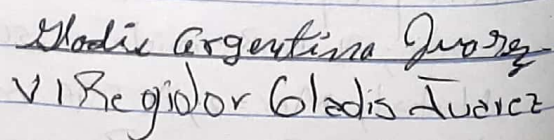 Gladis Argentina Juarez
VI Regidor Gladis Juarez